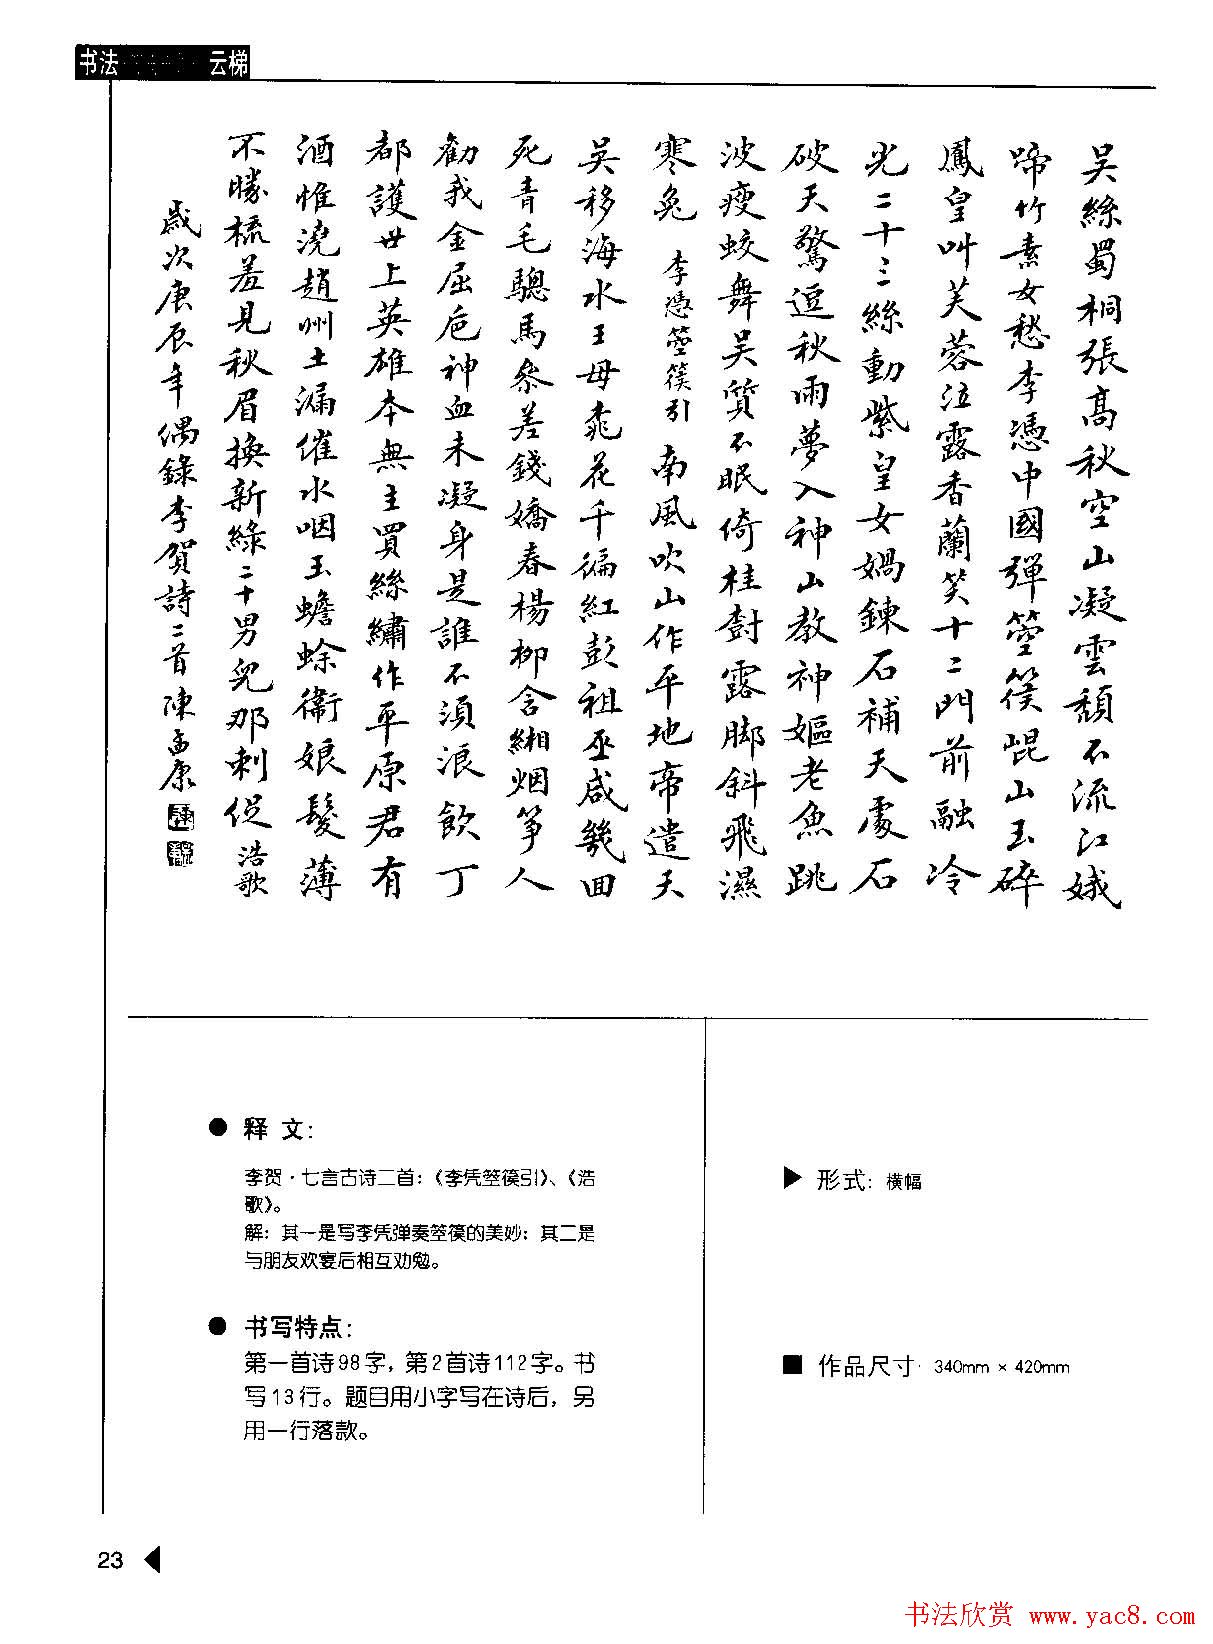 书法 云梯
吴絲蜀桐張高秋空山凝雲頹不流江娥
啼竹素女愁李憑中國彈箜篌崐山玉碎
鳳皇叫芙蓉泣露香蘭笑十二門前融冷
光二十三絲動紫皇女媧鍊石補天處石
破天驚逗秋雨夢入神山教神嫗老魚跳
波瘦蛟舞吴質不眠倚桂樹露脚斜飛濕
寒兔 李憑箜篌引 南風吹山作平地帝遣天
吴移海水王母桃花千徧紅彭祖巫咸幾回
死青毛驄馬參差錢嬌春楊柳含緗烟筝人
勸我金屈卮神血未凝身是誰不須浪飲丁
都護世上英雄本無主買絲繡作平原君有
酒惟澆趙州土漏催水咽玉蟾蜍衛娘髮薄
不勝梳羞見秋眉换新綠二十男兒那刺促 浩歌
歲次庚辰年偶錄李賀詩二首陳孟康
● 释 文：
李贺·七言古诗二首：《李凭箜篌引》、《浩
歌》。
解：其一是写李凭弹奏箜篌的美妙；其二是
与朋友欢宴后相互劝勉。
● 书写特点：
第一首诗98字，第2首诗112字。书
写13行。题目用小字写在诗后，另
用一行落款。
▶ 形式：横幅
■ 作品尺寸· 340mm × 420mm
23
书法欣赏 www.yac8.com